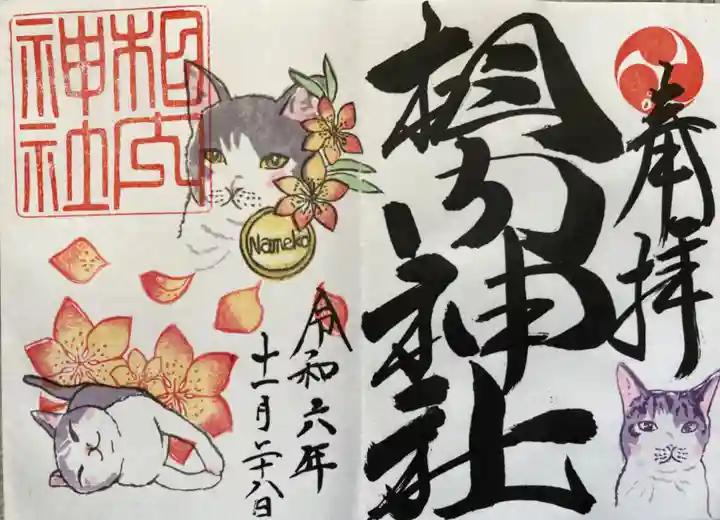 奉拝
相内神社
相内
神社
Nameko
令和六年
十一月二十八日